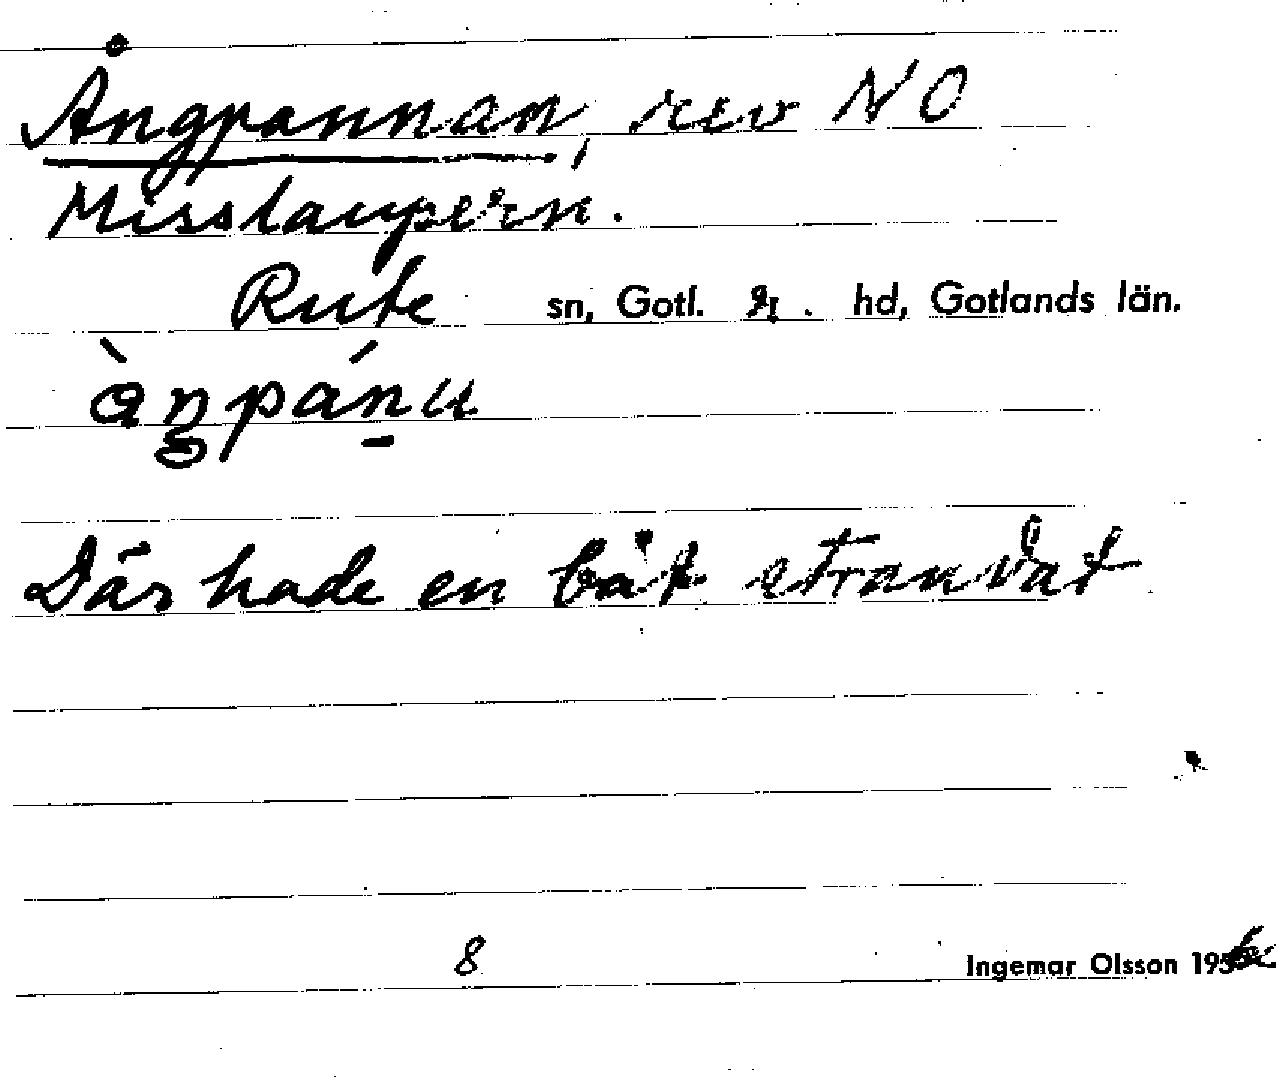 Ångpannan, rev NO
Misslaupern.
Rute sn, Gotl. n. hd, Gotlands län.
àŋpánu
Där hade en båt strandat
8 Ingemar Olsson 195